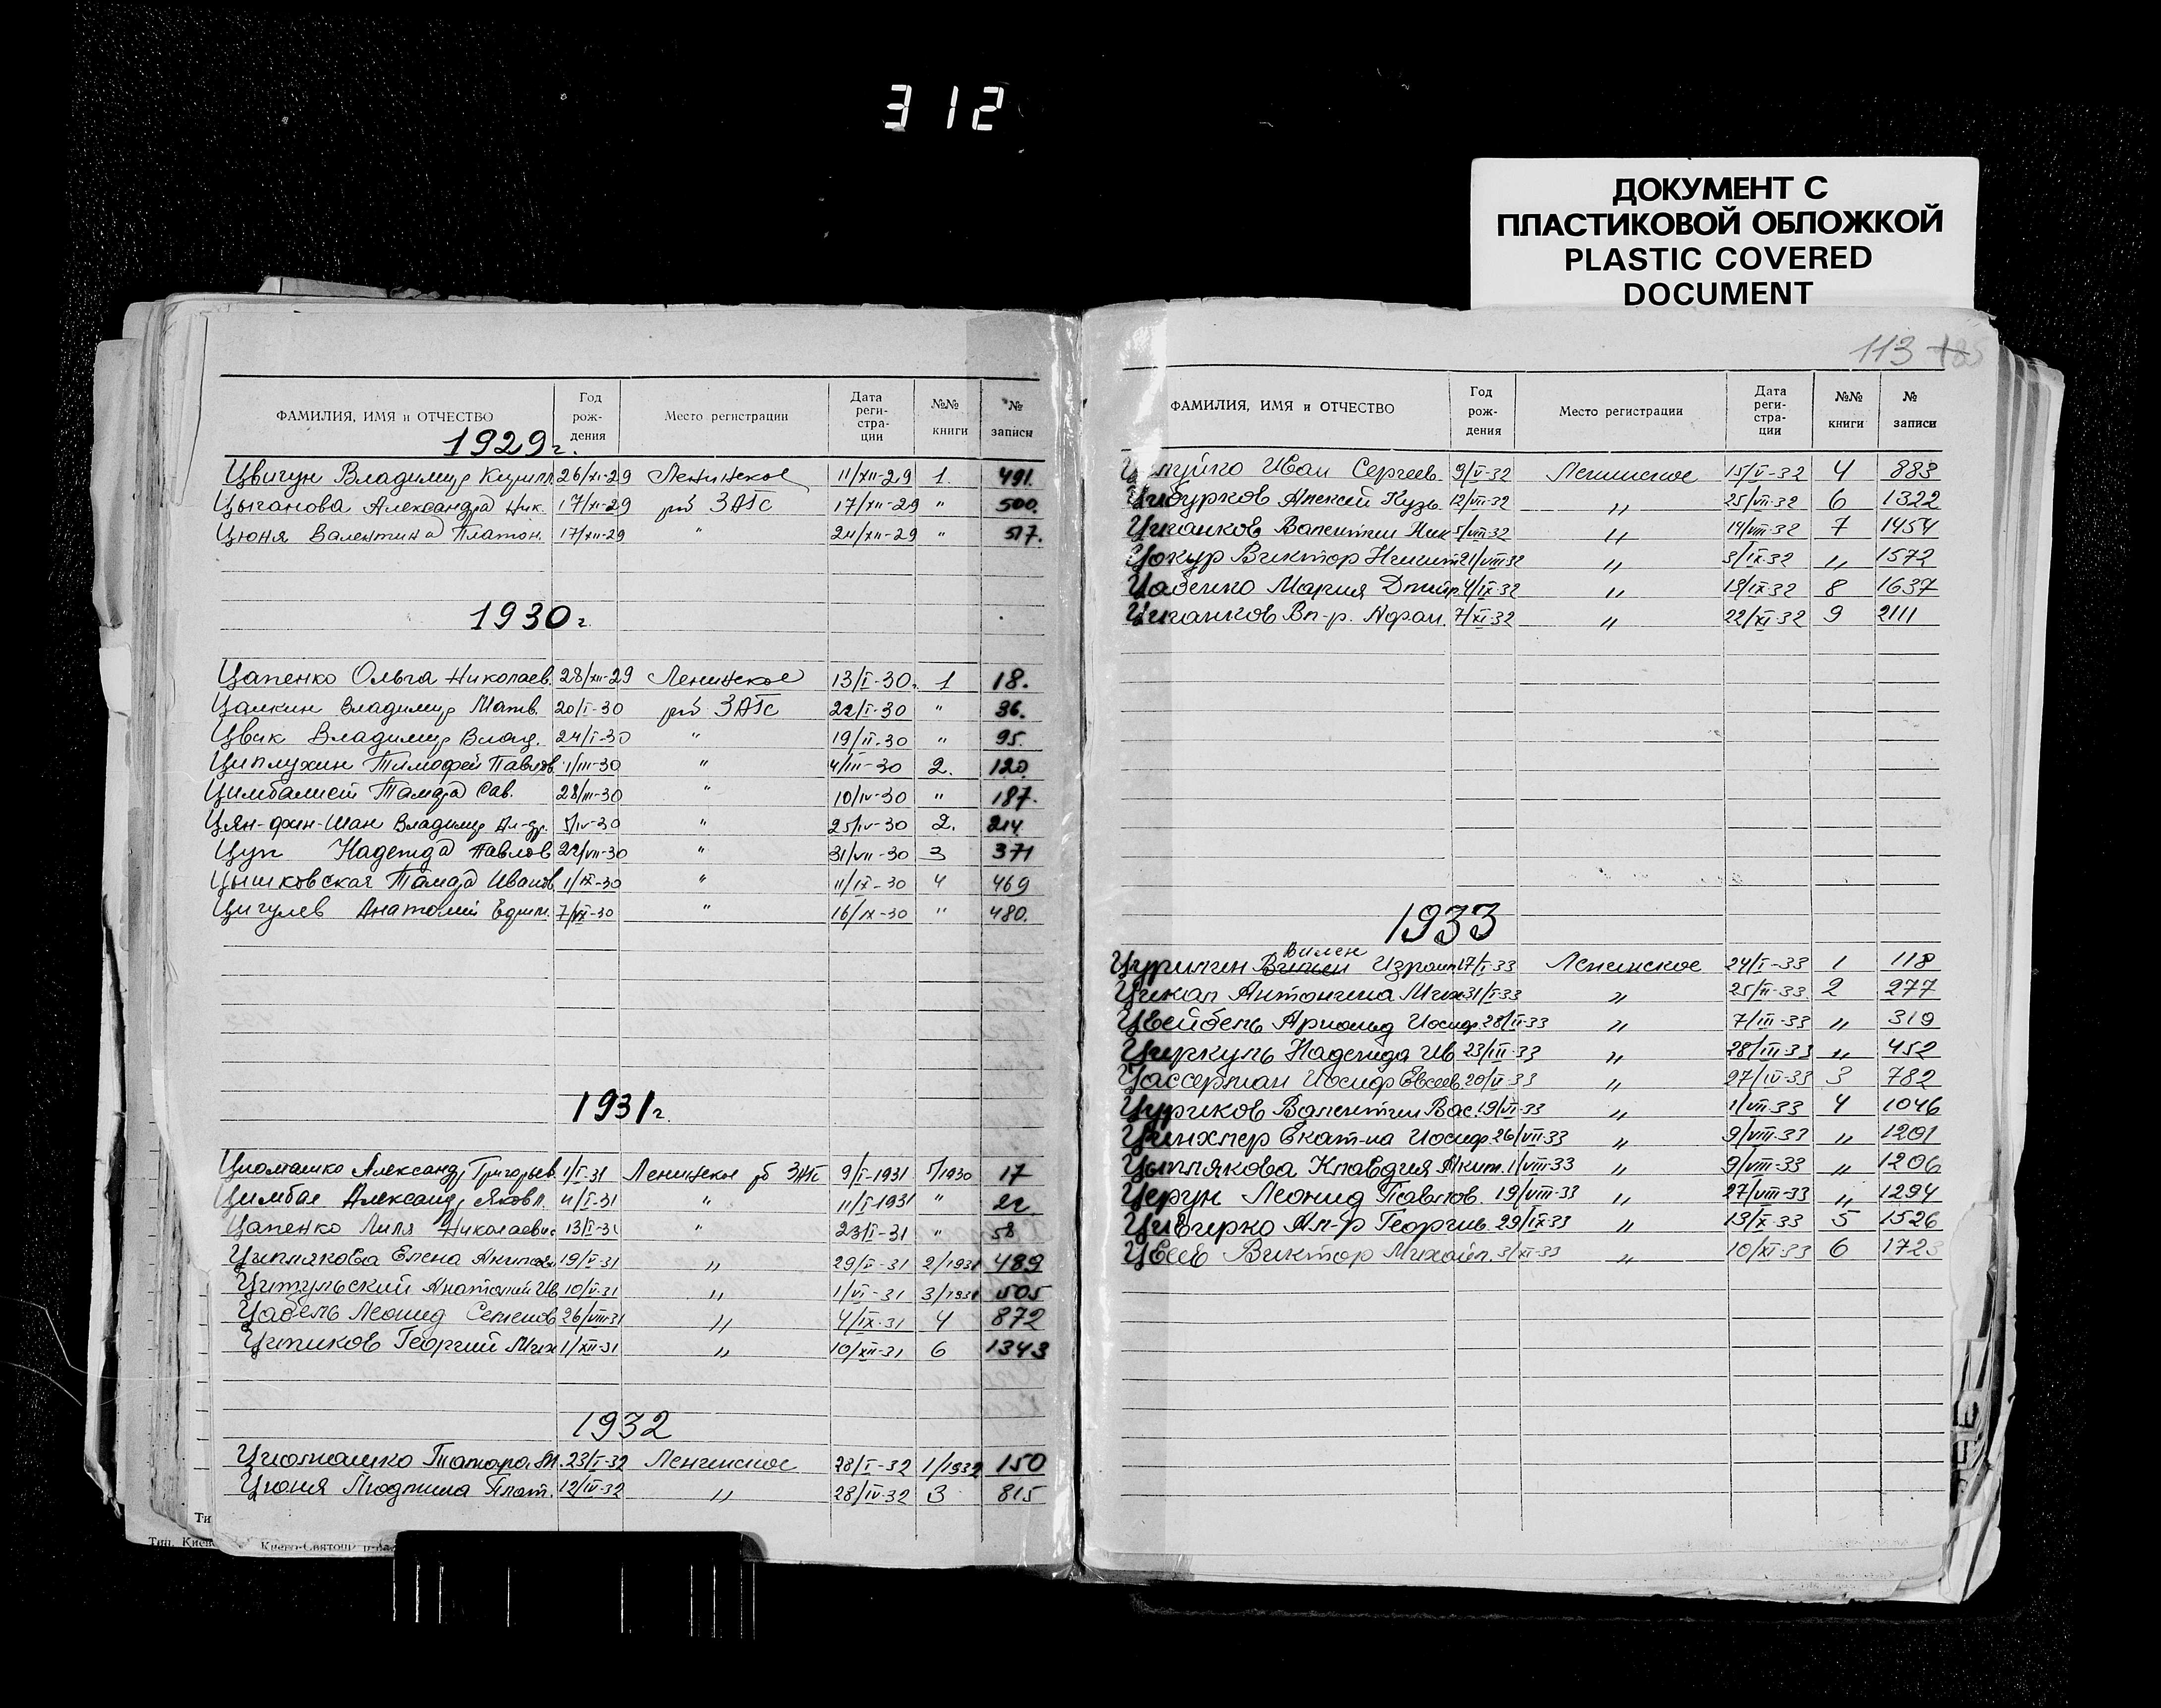 312
ДОКУМЕНТ С
ПЛАСТИКОВОЙ ОБЛОЖКОЙ
PLASTIC COVERED
DOCUMENT
ФАМИЛИЯ, ИМЯ и ОТЧЕСТВО Год рож- дения Место регистрации Дата реги- стра- ции №№ книги № записи
1929 г.
Цвигун Владимир Кирилл 26/XI-29 Ленинское 11/XII-29 1. 491.
Цыганова Александра Ник. 17/XI-29 рай ЗАГс 17/XII-29 " 500.
Цюня Валентина Платон. 17/XII-29 " 24/XII-29 " 517.
1930 г.
Цапенко Ольга Николаев. 28/XII-29 Ленинское 13/I-30. 1 18.
Цалкин Владимир Матв. 20/I-30 рай ЗАГс 22/I-30 " 36.
Цвик Владимир Влад. 24/I-30 " 19/II-30 " 95.
Циплухин Тимофей Павлов. 1/III-30 " 4/III-30 2. 120.
Цимбалист Тамара Сав. 28/III-30 " 10/IV-30 " 187.
Цян-фин-Шан Владимир Ал-др. 5/IV-30 " 25/IV-30 2. 214
Цуп Надежда Павлов 22/VII-30 " 31/VII-30 3 371
Цышковская Тамара Иванов 1/IX-30 " 11/IX-30 4 469
Цигулев Анатолий Ефим. 7/IX-30 " 16/IX-30 " 480.
1931 г.
Циомашко Александр Григорьев. 1/I-31 Ленинское рб ЗАГС 9/I-1931 5/1930 17
Цимбал Александр Яковл. 4/I-31 " 11/I-1931 " 22
Цапенко Лиля Николаевна 13/I-31 " 23/I-31 " 58
Циплякова Елена 19/V-31 " 29/V-31 2/1931 489
Цитульский Анатолий Ив 10/V-31 " 1/VI-31 3/1931 505
Цабель Леонид Семенов 26/VIII-31 " 4/IX-31 4 872
Цитиков Георгий Мих 1/XII-31 " 10/XII-31 6 1343
1932
Циомашко Тамара М. 23/I-32 Ленинское 28/I-32 1/1932 150
Цюня Людмила Плат. 12/IV-32 " 28/IV-32 3 815
113
ФАМИЛИЯ, ИМЯ и ОТЧЕСТВО Год рож- дения Место регистрации Дата реги- стра- ции №№ книги № записи
Иван Сергеев. 9/V-32 Ленинское 15/V-32 4 883
Цибурков Алексей Кузь. 12/VII-32 " 25/VII-32 6 1322
Циганков Валентин Ник 5/VIII-32 " 14/VIII-32 7 1454
Цокур Виктор Никит 21/VIII-32 " 3/IX-32 " 1572
Цабенко Мария Дмитр 4/IX-32 " 13/IX-32 8 1637
Циганков Вл-р. Афан. 7/XI-32 " 22/XI-32 9 2111
1933
Вилен
Цурилин Израил 17/I-33 Ленинское 24/I-33 1 118
Цикал Антонина Мих 31/I-33 " 25/II-33 2 277
Цвейбель Арнольд Иосиф. 28/II-33 " 7/III-33 " 319
Циркуль Надежда Ив 23/III-33 " 28/III-33 " 452
Цассерман Иосиф Евсеев 20/IV-33 " 27/IV-33 3 782
Цуриков Валентин Вас. 19/VI-33 " 1/VII-33 4 1046
Екат-на Иосиф. 26/VII-33 " 9/VIII-33 " 1201
Цыплякова Клавдия Аким. 1/VIII-33 " 9/VIII-33 " 1206
Церун Леонид Павлов. 19/VIII-33 " 27/VIII-33 " 1294
Цивирко Ал-р Георгив. 29/IX-33 " 13/X-33 5 1526
Виктор Михайл. 3/XI-33 " 10/XI-33 6 1723